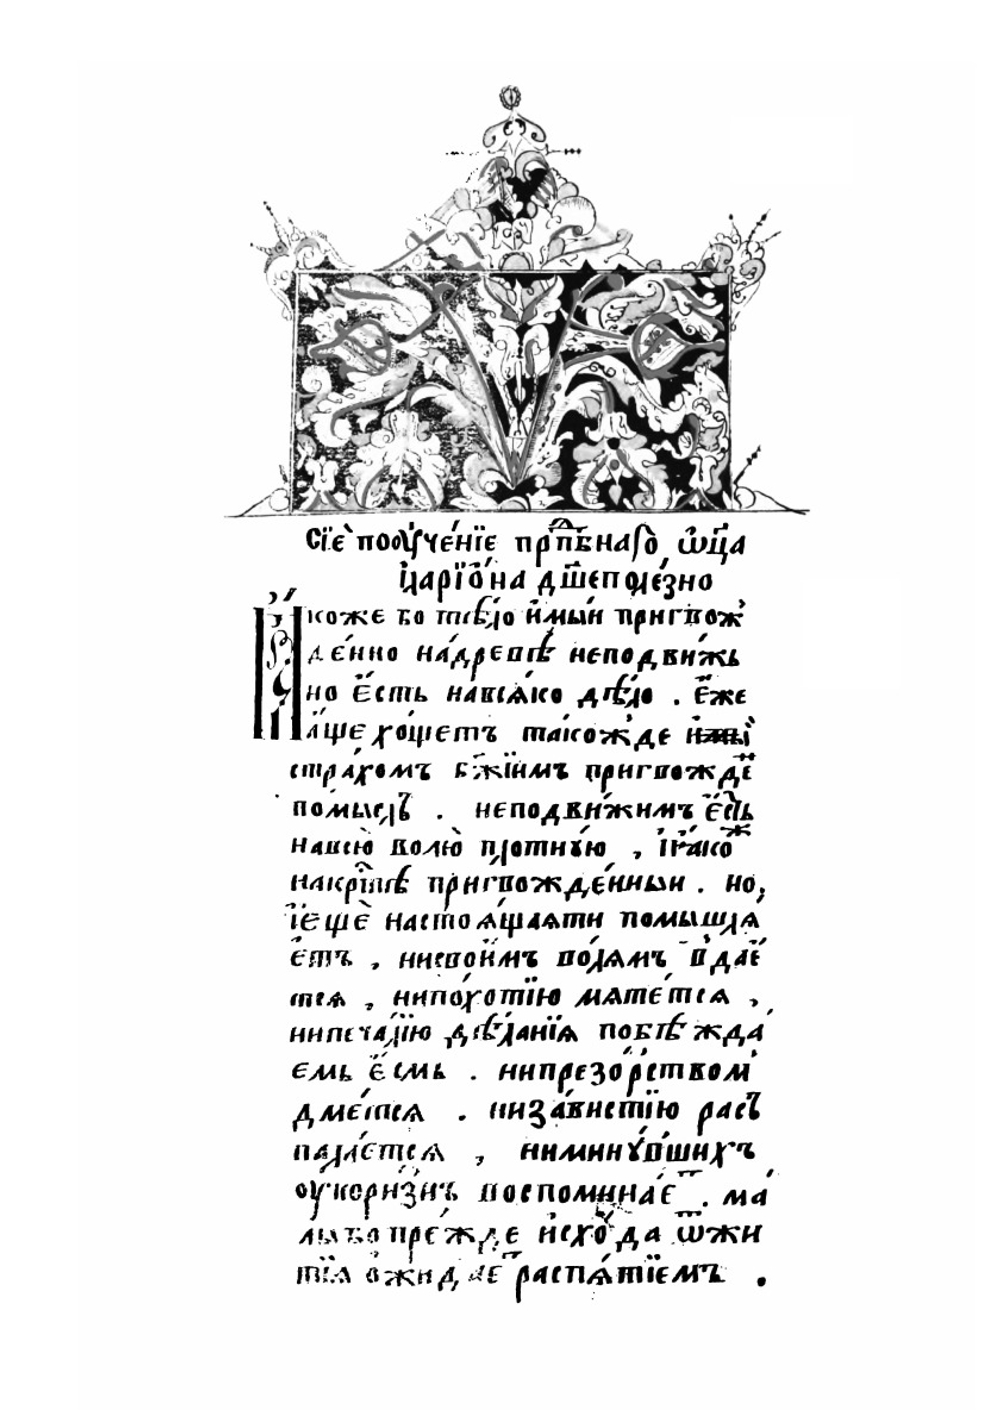 сїѐ пооуче́нїе прпⷣбнаго̀ ѡ҆ц҃а
їларїѡ́на дш҃еполе́зно
Ꙗ҆коже бо тѣ́ло и҆мы́и пригвож̾
де́нно на́древѣ неподви́жь
но є҆́сть навсѧ́ко дѣ́ло . є҆́же
а҆́ще хо́щетъ та́кожде
стра́хомъ бж҃їимъ пригвожде́н
по́мыслъ . неподви́жимъ є҆́сть
навсю̀ волю̀ пло́тнꙋю , ꙗ҆́коⷤ
накрⷭ҇тѣ пригвожде́нныи . но,
їе҆щѐ настоѧ́щаѧти помышлѧ
е́тъ , нисвои́мъ по́лѧмъ в̾дае́
тсѧ , нипо́хотїю мѧте́тсѧ ,
нипеча́лїю дѣ́ланїѧ побѣжда́
емь є҆́смь . нипрезо́рством̾
дме́тсѧ . низа́вистїю расъ
пала́етсѧ , нимину́вшихъ
оукори́знъ воспомина́еⷮ . ма́
лы бо пре́жде и҆схо́да ѿжи
тїѧ ѡ҆жида́еⷮ распѧ́тїемъ .